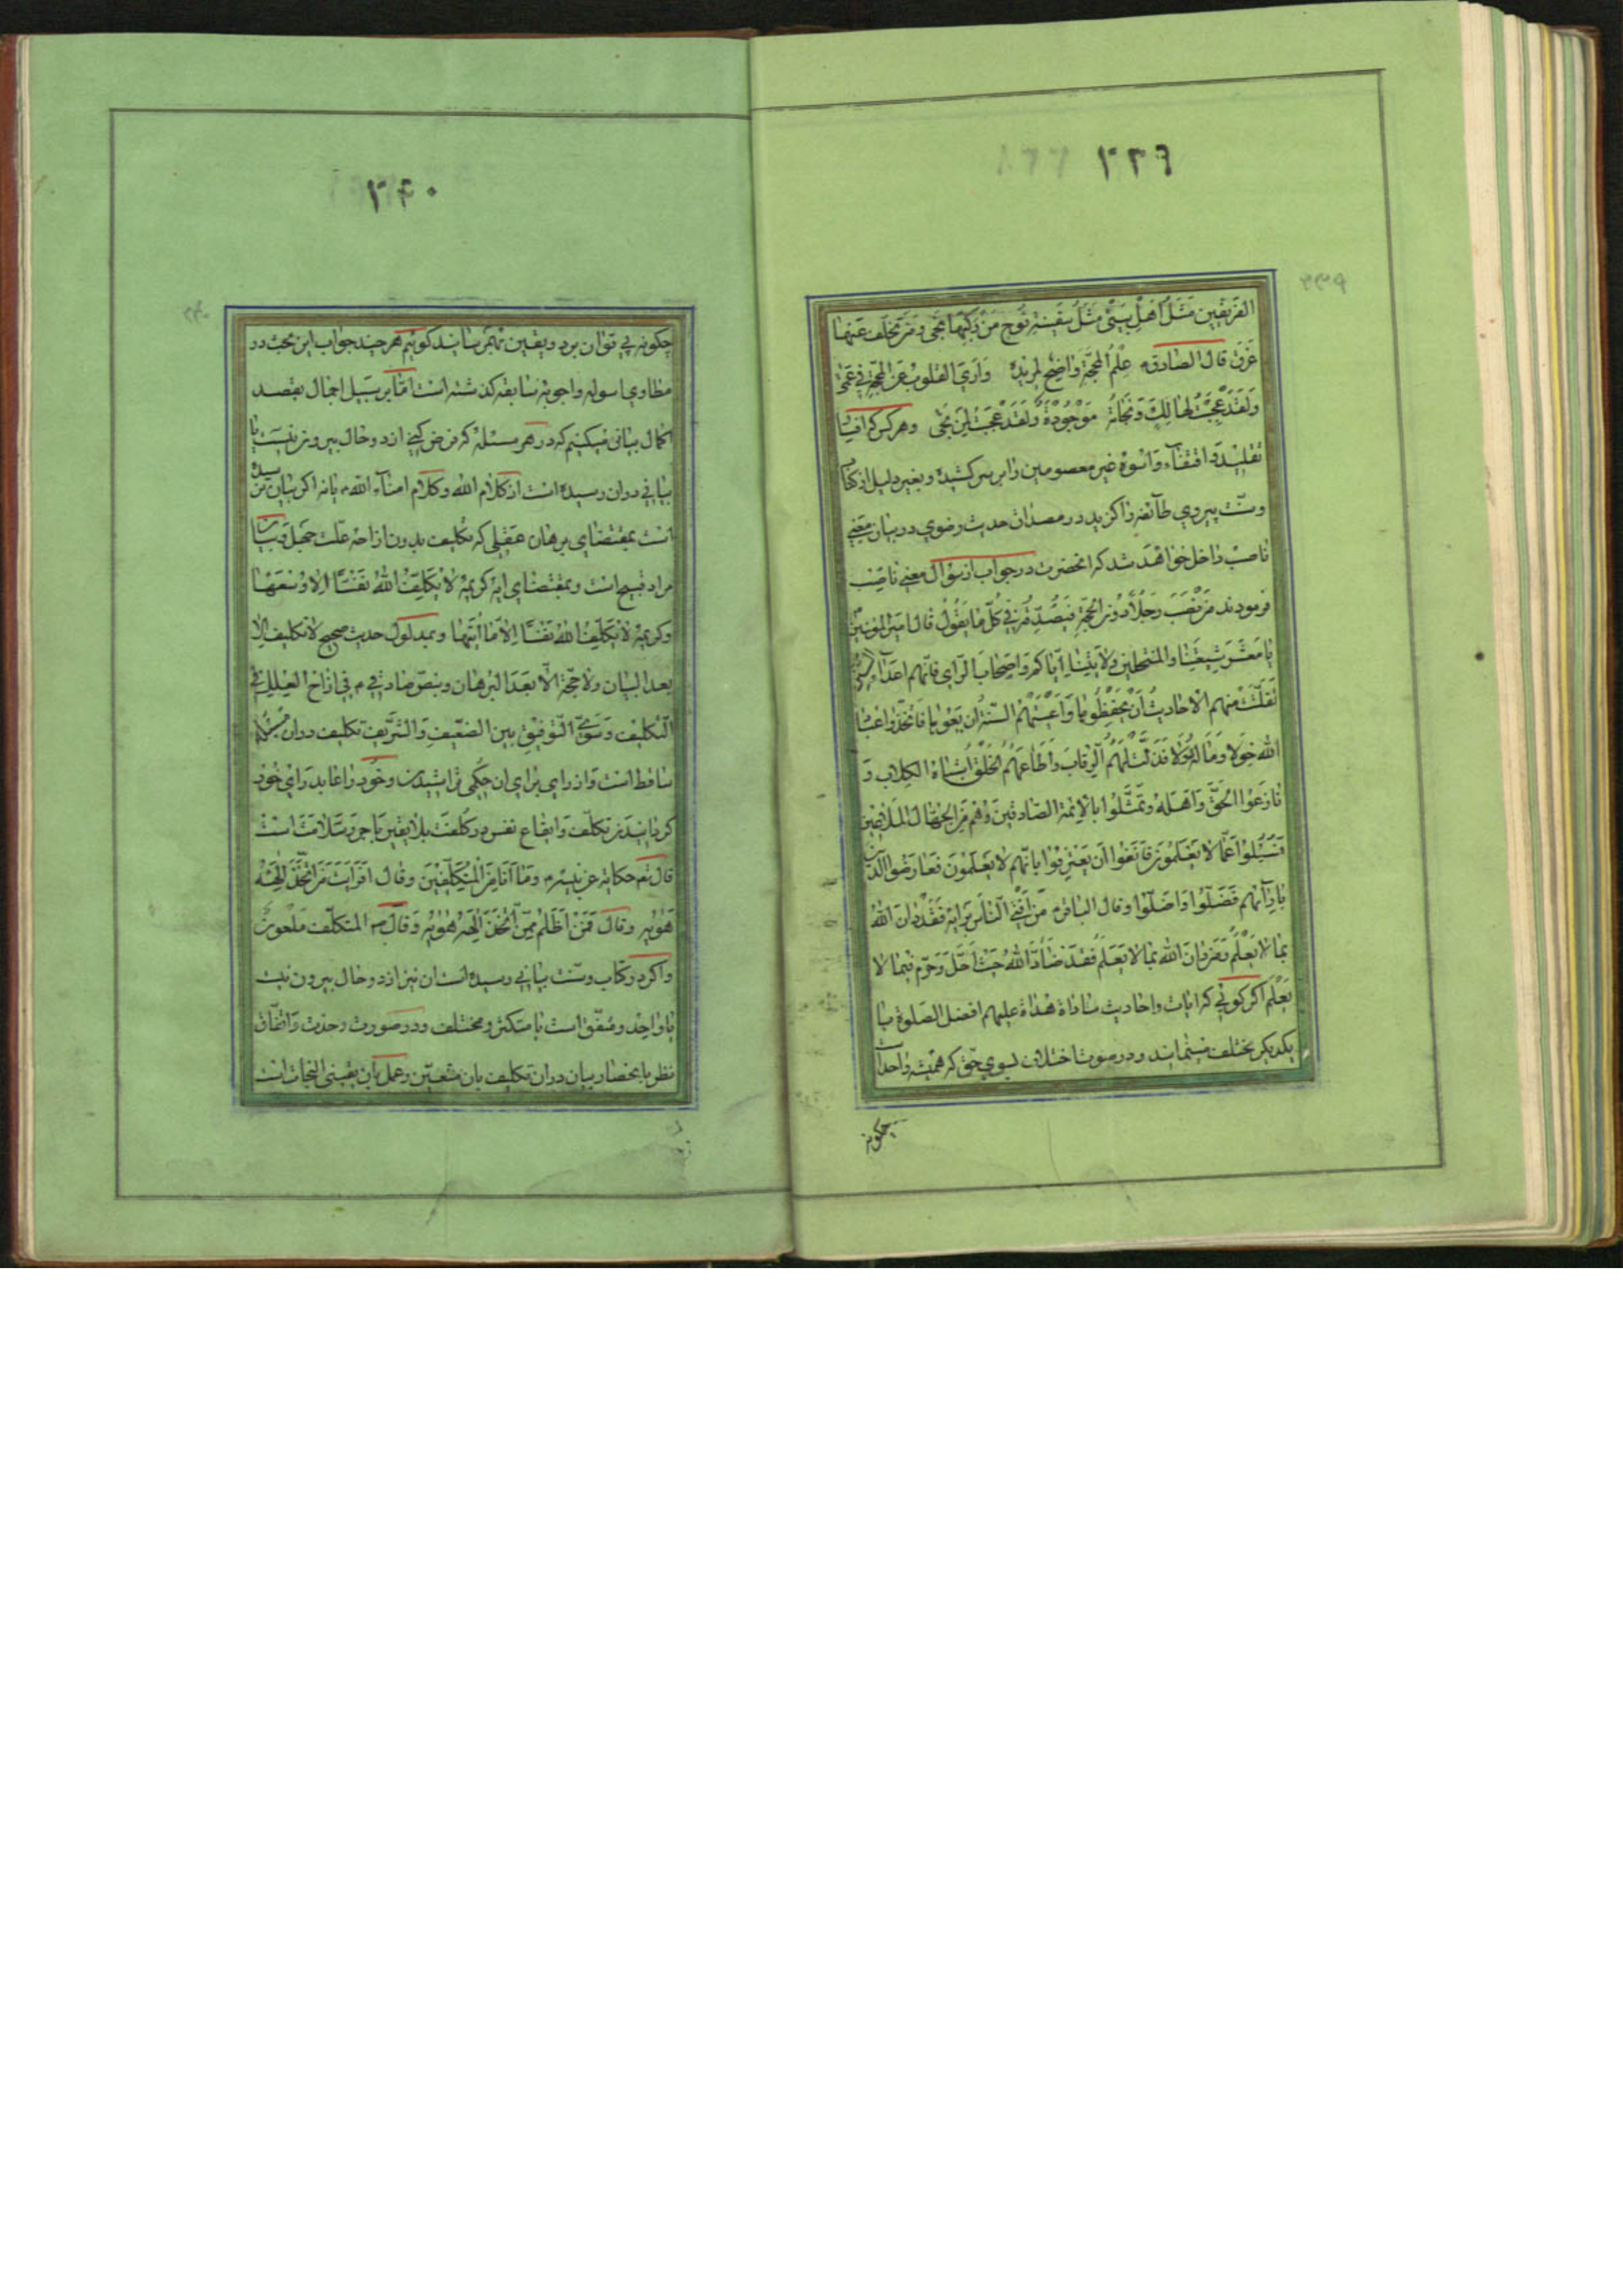 ۲۳۹
الفريقين مَثَلُ اَهْلِ بَيْتى مَثَلُ سَفينةِ نُوحٍ مَنْ رَكِبَها نَجى وَمَنْ تَخَلَّفَ عَنها
غَرَقَ قال الصادق عِلْمُ المحجَّةِ واضِحٌ لمريده وَاَرَى القلوبَ عَنِ المحجّةِ فى عَمىً
وَلَقَدْ عَجِبْتُ لهالِكٍ وَنَجاتُهُ مَوْجُودَةٌ وَلَقَدْ عَجِبْتُ لِمَنْ نَجى وهركس كه
تقليد و اقتفاء و اسوه غير معصومين را بر سر كشيده و بغير دليل از كتاب
وسنّت پيروي طائفه را كزيد در مصداق حديث رضوي در بيان معني
ناصب داخل خواهد شد كه انحضرت در جواب از سؤال معني ناصب
فرمودند مَنْ نَصَبَ رَجُلاً دُونَ الحُجَّةِ فَصَدَّقَهُ فى كُلِّ ما يَقُولُ قال امير المؤمنين
يا مَعْشَرَ شيعَتِنا والمنتحلين ولايَتَنا اِيّاكم وَاصحابَ الرّاى فانّهم اعداء السنن
تَفَلَّتَتْ مِنهم الاحاديثُ اَنْ يَحْفَظُوها وَاَعْيَتْهُمُ السّنّةُ ان يَعُوها فَاتّخَذُوا عِبادَ
الله خِوَلا وَمالَهُ دُوَلاً فَذَلَّتْ لَهُمُ الرِّقابَ وَاَطاعَهُمُ الخَلْقُ اشباه الكِلاب وَ
نازَعُوا الحَقَّ وَاَهْلَهُ وتَمَثَّلُوا بالائمة الصّادقينَ وَهُم مِنَ الجُهّال المَلاعين
فَسُئِلُوا عَمّا لا يَعْلَمُونَ فَاَنِفُوا اَن يَعْتَرِفُوا بانّهم لا يَعْلَمُون فعارَضُوا الدّين
بِآرائهم فَضَلّوا وَاَضَلّوا وقال الباقر مَنْ اَفْتى النّاسَ بِرَايِه فَقَدْ دانَ اللهَ
بما لا يَعْلَمُ وَمَنْ دانَ اللهَ بما لا يَعْلَم فقد ضادَّ اللهَ حيثُ اَحَلَّ وَحَرّم فيما لا
يَعْلَم اكر كوئي كه ايات واحاديث ساداة هداة عليهم افضل الصلوة با
يكديكر مختلف مينمايند ودر صورت اختلاف بسوي حق كه هميشه واحد است
چكونه
۲۴۰
چكونه پي توان برد ويقين بهم رسانيد كوئيم هر چند جواب اين مبحث در
مطاوي اسوله واجوبه سابقه كذشته است امّا بر سبيل اجمال بقصد
اكمال بياني ميكنيم كه در هر مسئله كه فرض كني از دو حال بيرون نيست يا
بياني در ان رسيده است از كلام الله وكلام امناء الله يا نه اكر بيان نرسيده
است بمقتضاي برهان عقلي كه تكليف بدون ازاحه علّت جهل وبيان
مراد قبيح است وبمقتضاي ايه كريمه لا يُكَلِّفُ اللهُ نَفْسًا اِلاّ وُسْعَهَا
وكريمه لا يُكَلِّفُ اللهُ نَفْسًا اِلاّ ما اٰتٰيهَا وبمدلول حديث صحيح لا تكليف الا
بعد البيان ولا حجّة الاّ بعد البرهان وبنصّ صادقي فى ازاح العِلل فى
التكليف وَسَوّى التّوفيق بين الضعيف وَالشّريف تكليف در ان مسئله
ساقط است واز راي براي ان حكمي تراشيدن وخود را عابد راي خود
كردانيدن تكلّف وايقاع نفس در كلفت بلا يقين باجر وسلامت است
قال تعم حكاية عن نبيه وما اَنا مِنَ المُتكَلِّفينَ وقال افَرَاَيْتَ مَنِ اتّخَذَ اِلٰهَهُ
هَوٰيهُ وقال فَمَنْ اَظْلَمُ مِمَّنْ اتَّخَذَ اِلٰهَهُ هَوٰيهُ وَقال المتكلّف ملعون
واكر در كتاب وسنّت بياني رسيده است ان نيز از دو حال بيرون نيست
يا واحد ومتّفق است يا متكثر ومختلف ودر صورت وحدت واتفاق
نظر بانحصار بيان در ان تكليف بان متعيّن وعمل بان يقيني النجات است